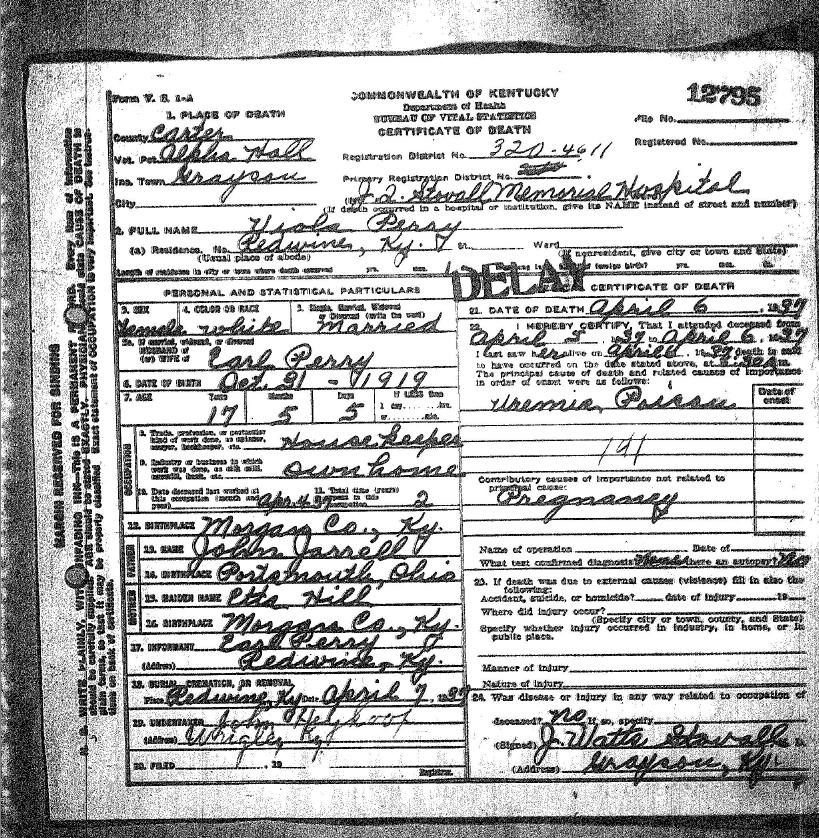 Form V. S. 1-A
COMMONWEALTH OF KENTUCKY
Department of Health
BUREAU OF VITAL STATISTICS
CERTIFICATE OF DEATH
12795
File No.
Registered No.
1. PLACE OF DEATH
County Carter
Vot. Pct. Alpha Hall
Inc. Town Grayson
City
Registration District No. 320-4611
Primary Registration District No.
J. Q. Stovall Memorial Hospital
(If death occurred in a hospital or institution, give its NAME instead of street and number)
2. FULL NAME Viola Perry
(a) Residence. No. Redwine, Ky. St. Ward
(Usual place of abode) (If nonresident, give city or town and State)
Length of residence in city or town where death occurred yrs. mos. foreign birth? yrs. mos.
DELAY
PERSONAL AND STATISTICAL PARTICULARS
3. SEX 4. COLOR OR RACE 5. Single, Married, Widowed or Divorced (write the word)
female white Married
5a. If married, widowed, or divorced
HUSBAND of
(or) WIFE of Earl Perry
6. DATE OF BIRTH Oct. 31 - 1919
7. AGE Years Months Days If LESS than
17 5 5 1 day hrs. or min.
OCCUPATION
8. Trade, profession, or particular kind of work done, as spinner, sawyer, bookkeeper, etc. House keeper
9. Industry or business in which work was done, as silk mill, sawmill, bank, etc. own home
10. Date deceased last worked at this occupation (month and year) Apr. 4 37 11. Total time (years) spent in this occupation 2
12. BIRTHPLACE Morgan Co., Ky.
FATHER
13. NAME John Jarrell
14. BIRTHPLACE Portsmouth, Ohio
MOTHER
15. MAIDEN NAME Etta Hill
16. BIRTHPLACE Morgan Co., Ky.
17. INFORMANT Earl Perry
(Address) Redwine, Ky.
18. BURIAL, CREMATION, OR REMOVAL
Place Redwine, Ky Date April 7, 1937
19. UNDERTAKER John
(Address) Wrigley Ky
20. FILED , 19
Registrar.
CERTIFICATE OF DEATH
21. DATE OF DEATH April 6, 1937
22. I HEREBY CERTIFY, That I attended deceased from
April 5, 1937 to April 6, 1937
I last saw her alive on April 6, 1937 death is said
to have occurred on the date stated above, at
The principal cause of death and related causes of importance
in order of onset were as follows:
Date of onset
Uremia Poison
141
Contributory causes of importance not related to
principal cause:
Pregnancy
Name of operation Date of
What test confirmed diagnosis? Was there an autopsy? No
23. If death was due to external causes (violence) fill in also the
following:
Accident, suicide, or homicide? date of injury 19
Where did injury occur?
(Specify city or town, county, and State)
Specify whether injury occurred in industry, in home, or in
public place.
Manner of injury
Nature of injury
24. Was disease or injury in any way related to occupation of
deceased? no If so, specify
(Signed) J. Watts Stovall
(Address) Grayson, Ky.
MARGIN RESERVED FOR BINDING